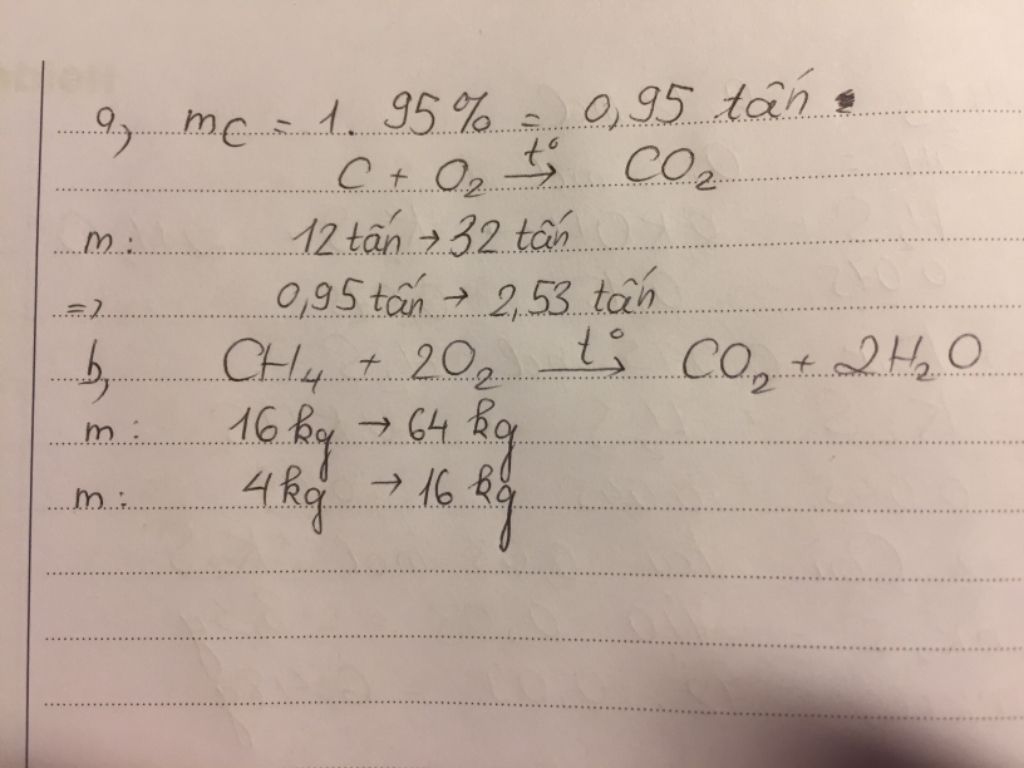 a, mC = 1. 95% = 0,95 tấn
C + O2 t°→ CO2
m: 12 tấn → 32 tấn
=> 0,95 tấn → 2,53 tấn
b, CH4 + 2O2 t°→ CO2 + 2H2O
m: 16 kg → 64 kg
m: 4 kg → 16 kg